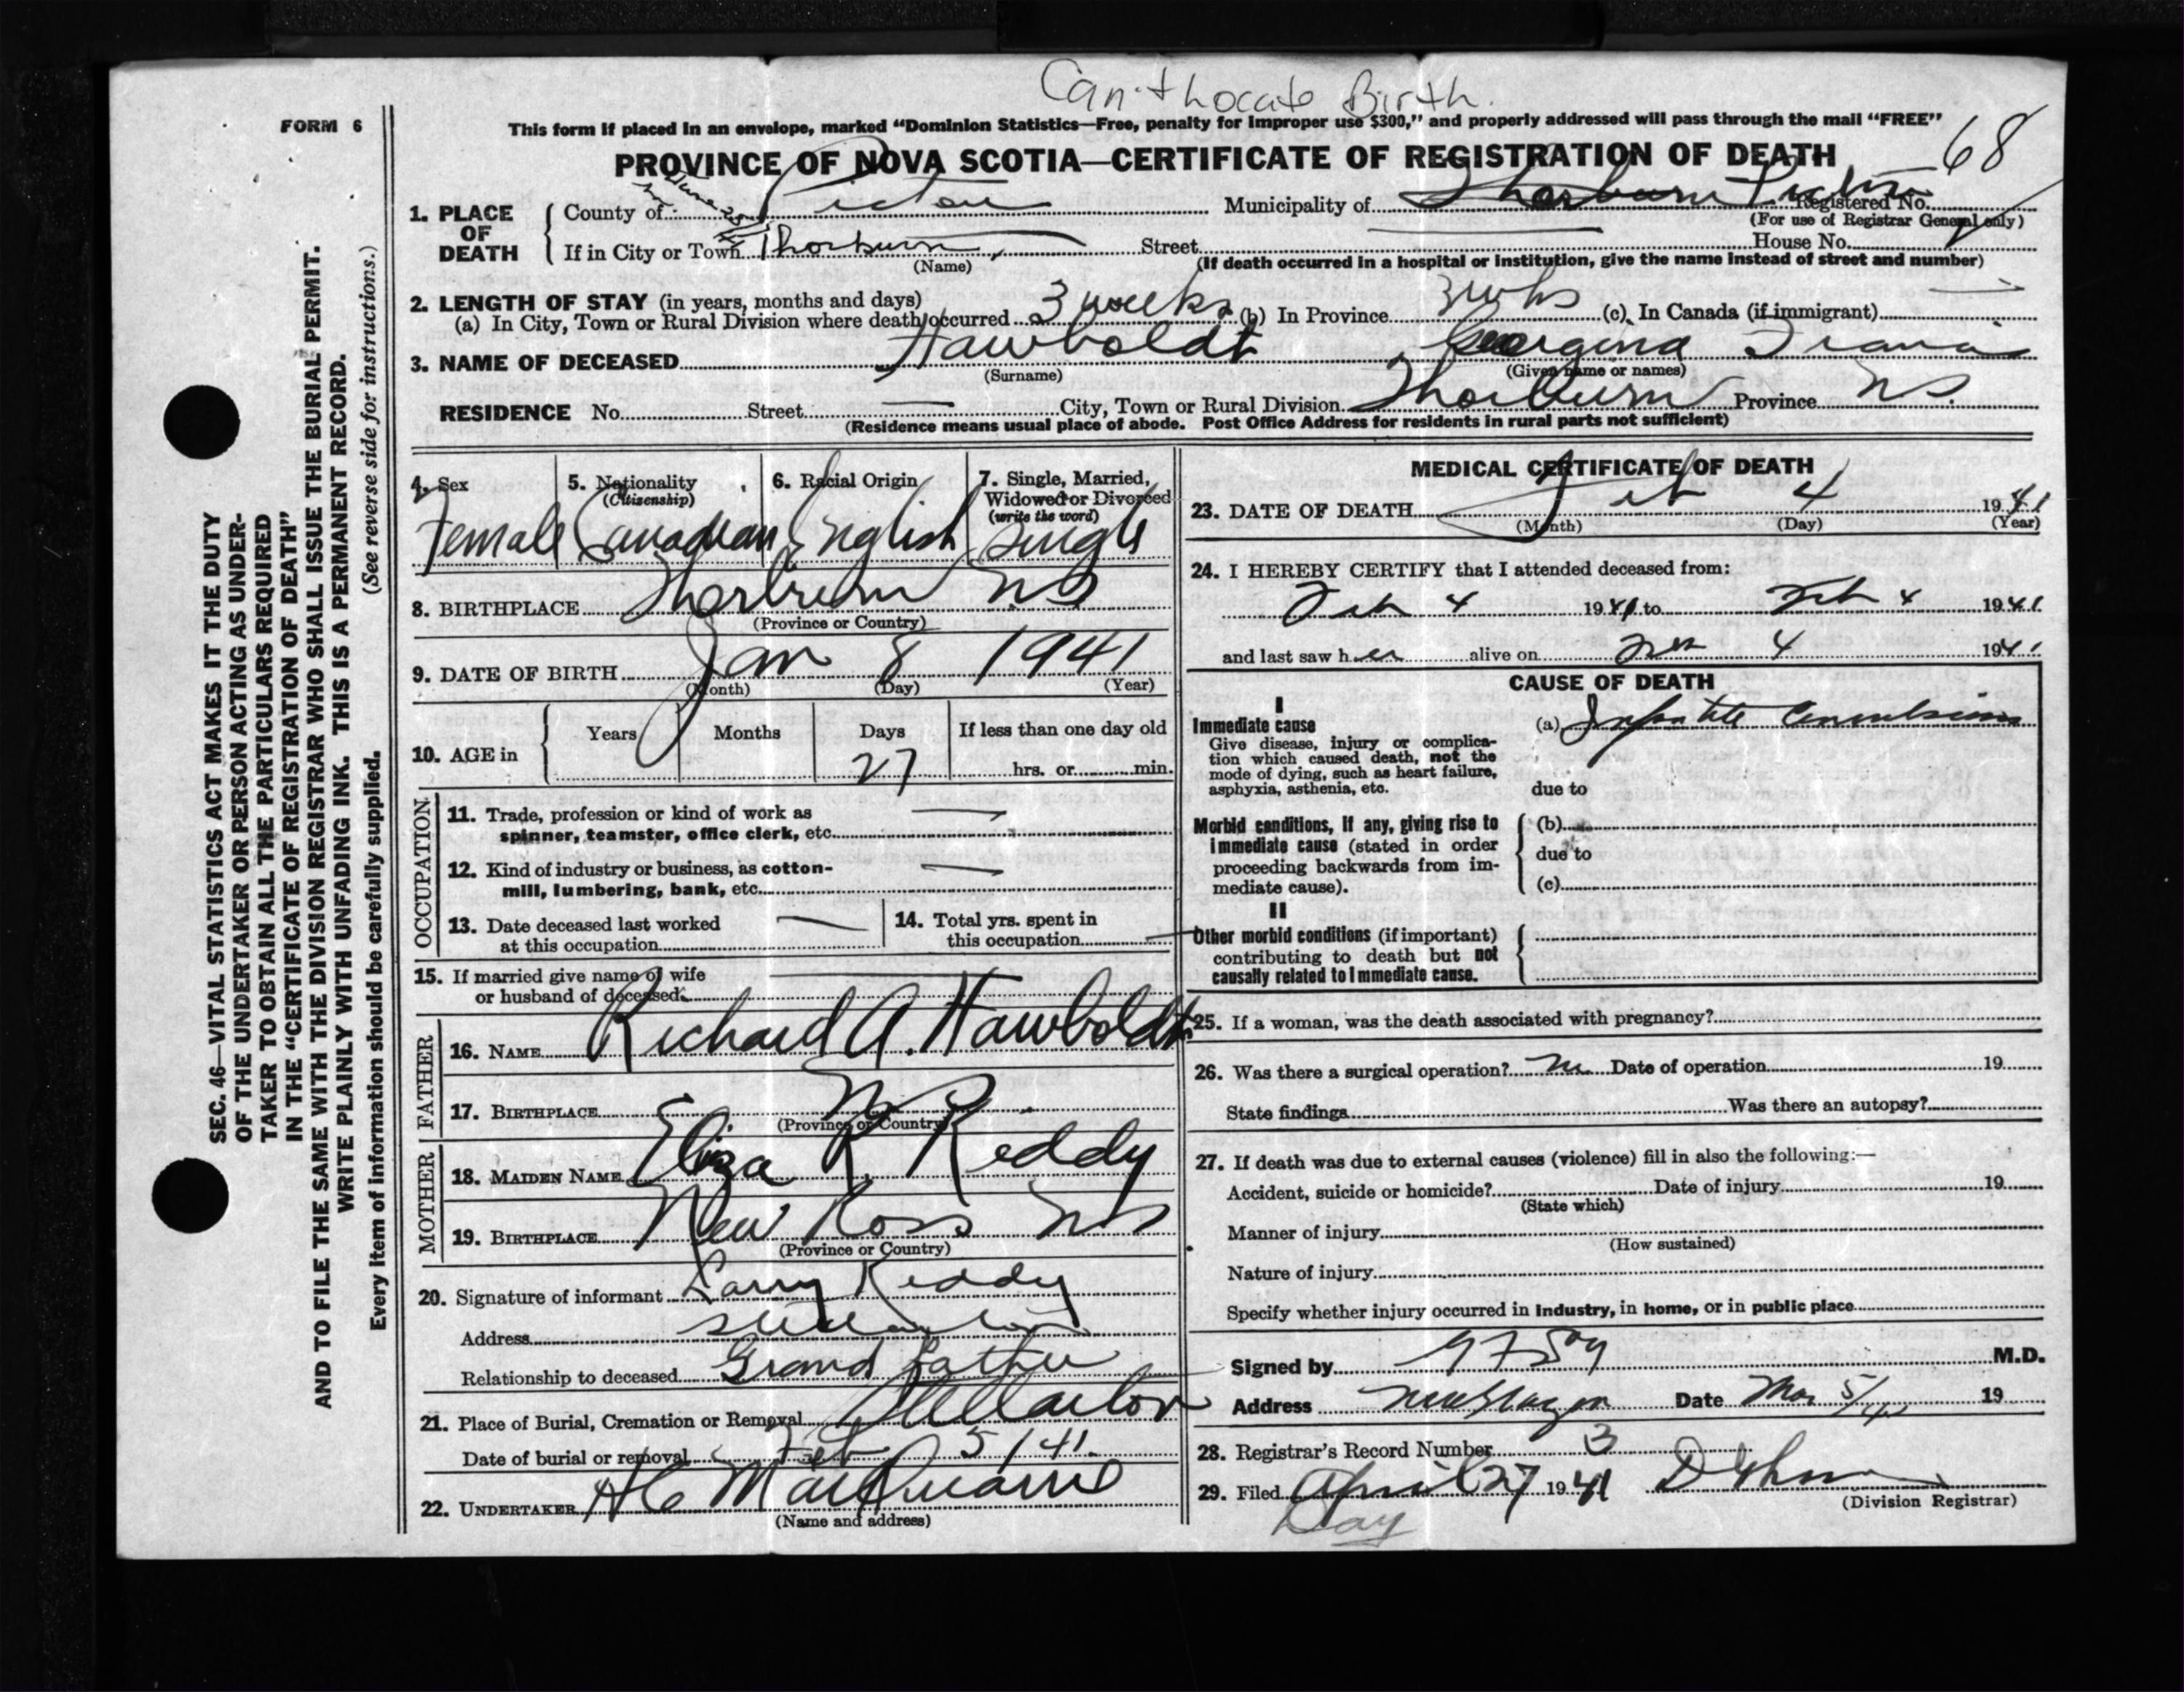 Can't Locate Birth.
FORM 6
This form if placed in an envelope, marked “Dominion Statistics—Free, penalty for improper use $300,” and properly addressed will pass through the mail “FREE”
PROVINCE OF NOVA SCOTIA—CERTIFICATE OF REGISTRATION OF DEATH 68
1. PLACE OF DEATH
County of Pictou Municipality of Thorburn Pictou Registered No.
(For use of Registrar General only)
If in City or Town Thorburn Street House No.
(Name) (If death occurred in a hospital or institution, give the name instead of street and number)
2. LENGTH OF STAY (in years, months and days)
(a) In City, Town or Rural Division where death occurred 3 weeks (b) In Province 3 wks (c) In Canada (if immigrant) —
3. NAME OF DECEASED Hawboldt, Georgina
(Surname) (Given name or names)
RESIDENCE No. Street — City, Town or Rural Division Thorburn Province N.S.
(Residence means usual place of abode. Post Office Address for residents in rural parts not sufficient)
4. Sex
Female
5. Nationality
(Citizenship)
Canadian
6. Racial Origin
English
7. Single, Married,
Widowed or Divorced
(write the word)
Single
8. BIRTHPLACE Thorburn N.S
(Province or Country)
9. DATE OF BIRTH Jan 8 1941
(Month) (Day) (Year)
10. AGE in Years Months Days If less than one day old
27 hrs. or min.
OCCUPATION
11. Trade, profession or kind of work as
spinner, teamster, office clerk, etc. —
12. Kind of industry or business, as cotton-
mill, lumbering, bank, etc. —
13. Date deceased last worked
at this occupation —
14. Total yrs. spent in
this occupation —
15. If married give name of wife
or husband of deceased —
FATHER
16. NAME Richard A. Hawboldt
17. BIRTHPLACE NS
(Province or Country)
MOTHER
18. MAIDEN NAME Eliza R. Reddy
19. BIRTHPLACE New Ross NS
(Province or Country)
20. Signature of informant Larry Reddy
Address Stellarton
Relationship to deceased Grand father
21. Place of Burial, Cremation or Removal Stellarton
Date of burial or removal Feb 5/41.
22. UNDERTAKER H C MacQuarrie
(Name and address)
MEDICAL CERTIFICATE OF DEATH
23. DATE OF DEATH Feb 4 1941
(Month) (Day) (Year)
24. I HEREBY CERTIFY that I attended deceased from:
Feb 4 1941 to Feb 4 1941
and last saw her alive on Feb 4 1941
CAUSE OF DEATH
I
Immediate cause
Give disease, injury or complica-
tion which caused death, not the
mode of dying, such as heart failure,
asphyxia, asthenia, etc.
(a) Infantile Convulsions
due to
Morbid conditions, if any, giving rise to
immediate cause (stated in order
proceeding backwards from im-
mediate cause).
(b)
due to
(c)
II
Other morbid conditions (if important)
contributing to death but not
causally related to immediate cause.
25. If a woman, was the death associated with pregnancy?
26. Was there a surgical operation? No Date of operation 19
State findings Was there an autopsy?
27. If death was due to external causes (violence) fill in also the following:—
Accident, suicide or homicide? Date of injury 19
(State which)
Manner of injury
(How sustained)
Nature of injury
Specify whether injury occurred in industry, in home, or in public place
Signed by M.D.
Address New Glasgow Date Mar 5/41 19
28. Registrar's Record Number 3
29. Filed April 27 1941
(Division Registrar)
Day
SEC. 46—VITAL STATISTICS ACT MAKES IT THE DUTY
OF THE UNDERTAKER OR PERSON ACTING AS UNDER-
TAKER TO OBTAIN ALL THE PARTICULARS REQUIRED
IN THE “CERTIFICATE OF REGISTRATION OF DEATH”
AND TO FILE THE SAME WITH THE DIVISION REGISTRAR WHO SHALL ISSUE THE BURIAL PERMIT.
WRITE PLAINLY WITH UNFADING INK. THIS IS A PERMANENT RECORD.
Every item of information should be carefully supplied. (See reverse side for instructions.)